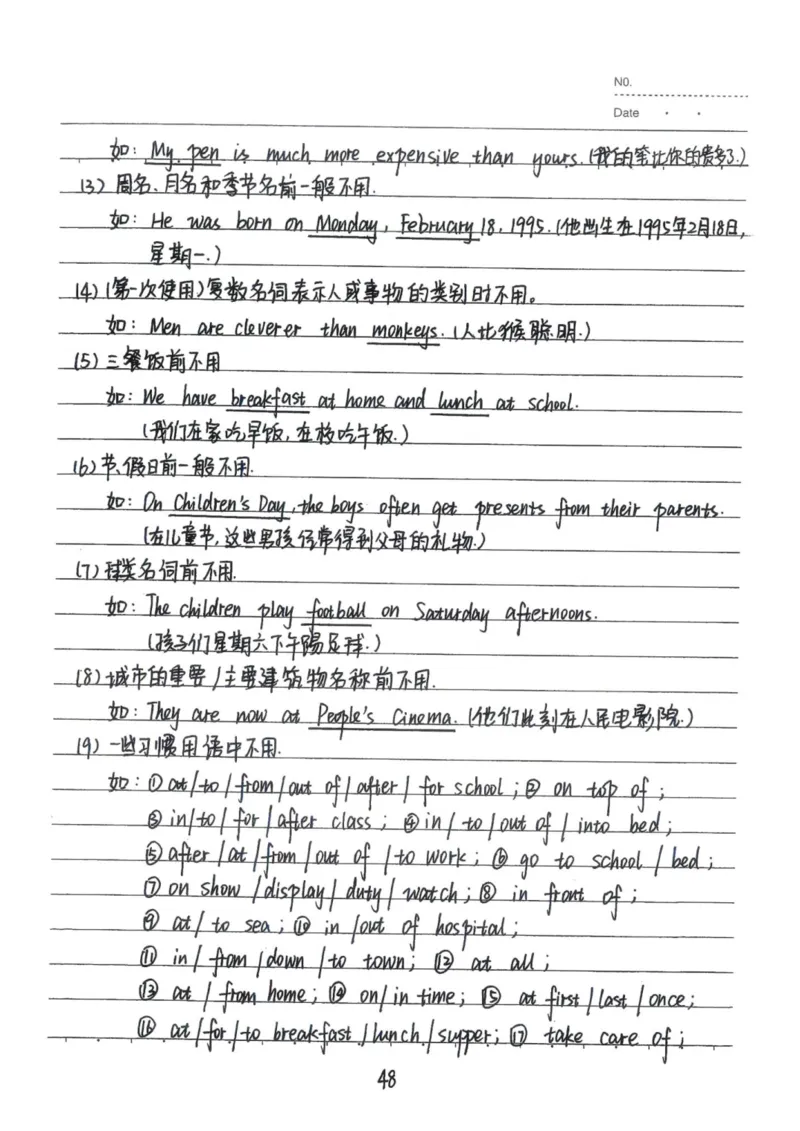 NO.
Date
如: My pen is much more expensive than yours. (我的笔比你的贵多了.)
(3) 周名、月名和季节名前一般不用.
如: He was born on Monday, February 18, 1995. (他出生在1995年2月18日,
星期一.)
(4) (第一次使用)复数名词表示人或事物的类别时不用。
如: Men are cleverer than monkeys. (人比猴聪明.)
(5) 三餐饭前不用
如: We have breakfast at home and lunch at school.
(我们在家吃早饭,在校吃午饭.)
(6) 节、假日前一般不用.
如: On Children's Day, the boys often get presents from their parents.
(在儿童节,这些男孩经常得到父母的礼物.)
(7) 球类名词前不用.
如: The children play football on Saturday afternoons.
(孩子们星期六下午踢足球.)
(8) 城市的重要/主要建筑物名称前不用.
如: They are now at People's Cinema. (他们此刻在人民电影院.)
(9) 一些习惯用语中不用.
如: ① at/to/from/out of/after/for school; ② on top of;
③ in/to/for/after class; ④ in/to/out of/into bed;
⑤ after/at/from/out of/to work; ⑥ go to school/bed;
⑦ on show/display/duty/watch; ⑧ in front of;
⑨ at/to sea; ⑩ in/out of hospital;
⑪ in/from/down/to town; ⑫ at all;
⑬ at/from home; ⑭ on/in time; ⑮ at first/last/once;
⑯ at/for/to breakfast/lunch/supper; ⑰ take care of;
48